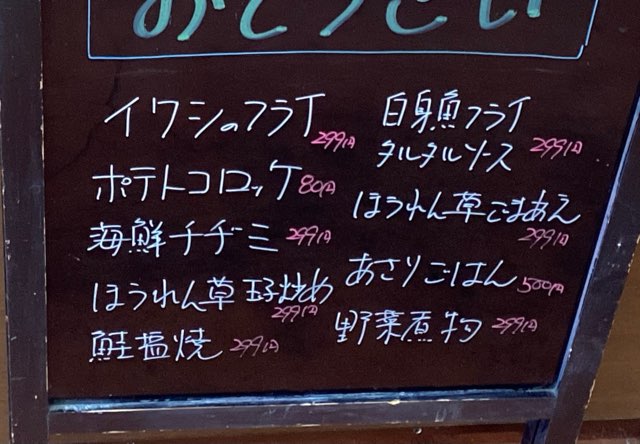 おそうざい
イワシのフライ
299円
ポテトコロッケ 80円
海鮮チヂミ 299円
ほうれん草玉子炒め
299円
鮭塩焼 299円
白身魚フライ
タルタルソース 299円
ほうれん草ごまあえ
299円
あさりごはん 500円
野菜煮物 299円